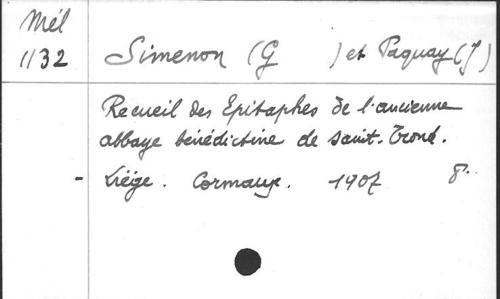 Mél
1132
Simenon (G ) et Paquay (J)
Recueil des Epitaphes de l'ancienne
abbaye bénédictine de Saint-Trond.
- Liège. Cormaux. 1907 8°.